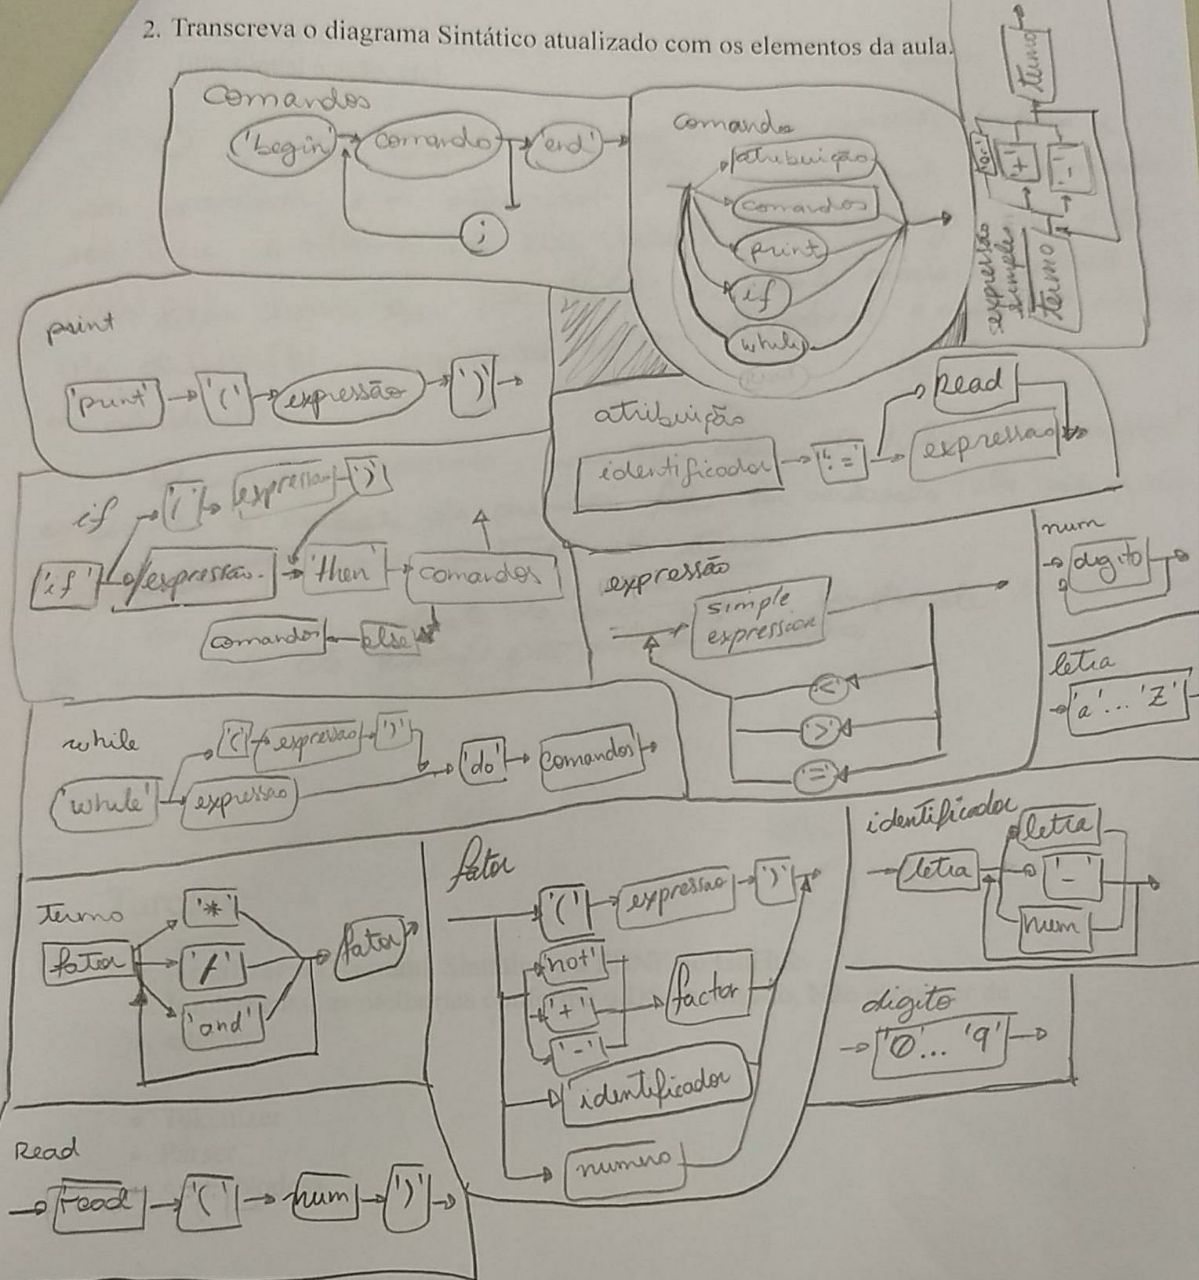 2. Transcreva o diagrama Sintático atualizado com os elementos da aula.
comandos
'begin' comando 'end'
;
comando
atribuição
comandos
print
if
while
expressão simples
termo 'or' '+' '-' termo
print
'print' '(' expressão ')'
atribuição
identificador ':=' expressao
Read
if
'(' expressao ')'
'if' expressão 'then' comandos
comandos else
expressão
simple
expression
'<'
'>'
'='
num
digito
letra
'a'... 'Z'
while
'(' expressao ')'
'while' expressao 'do' comandos
termo
fator '*' '/' 'and' fator
fator
'(' expressao ')'
'not'
'+' factor
'-'
identificador
numero
identificador
letra letra
'-'
num
digito
'0'... '9'
Read
read '(' num ')'